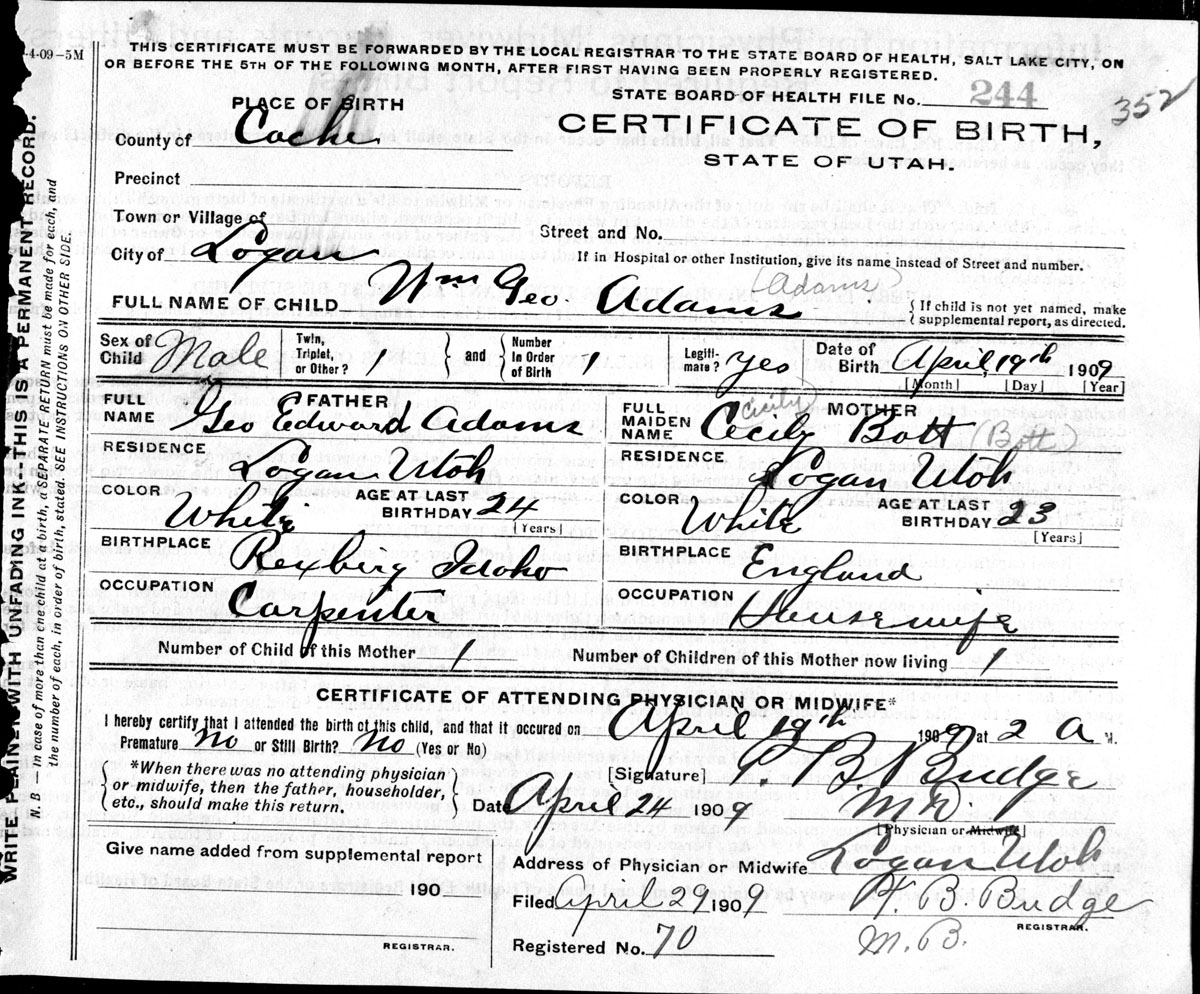 4-09-5M
THIS CERTIFICATE MUST BE FORWARDED BY THE LOCAL REGISTRAR TO THE STATE BOARD OF HEALTH, SALT LAKE CITY, ON
OR BEFORE THE 5TH OF THE FOLLOWING MONTH, AFTER FIRST HAVING BEEN PROPERLY REGISTERED.
STATE BOARD OF HEALTH FILE No. 244
352
PLACE OF BIRTH
CERTIFICATE OF BIRTH,
STATE OF UTAH.
County of Cache
Precinct
Town or Village of
Street and No.
City of Logan
If in Hospital or other Institution, give its name instead of Street and number.
FULL NAME OF CHILD Wm Geo. Adams (Adams)
{ If child is not yet named, make
supplemental report, as directed.
Sex of Child Male
Twin, Triplet, or Other? 1 } and { Number In Order of Birth 1
Legitimate? Yes
Date of Birth April, 19th 1909
[Month] [Day] [Year]
FATHER
FULL NAME Geo Edward Adams
RESIDENCE Logan Utah
COLOR White AGE AT LAST BIRTHDAY 24
[Years]
BIRTHPLACE Rexberg Idaho
OCCUPATION Carpenter
MOTHER
FULL MAIDEN NAME Cecily Bott (Cecily) (Bott)
RESIDENCE Logan Utah
COLOR White AGE AT LAST BIRTHDAY 23
[Years]
BIRTHPLACE England
OCCUPATION Housewife
Number of Child of this Mother 1 Number of Children of this Mother now living 1
CERTIFICATE OF ATTENDING PHYSICIAN OR MIDWIFE*
I hereby certify that I attended the birth of this child, and that it occured on April 19th 1909 at 2 A M.
Premature No or Still Birth? No (Yes or No)
{ *When there was no attending physician
or midwife, then the father, householder,
etc., should make this return. }
[Signature] B. Budge
Date April 24 1909 M.D.
[Physician or Midwife]
Give name added from supplemental report
190
REGISTRAR.
Address of Physician or Midwife Logan Utah
Filed April 29 1909 H. B. Budge
REGISTRAR.
Registered No. 70 M. B.
WRITE PLAINLY WITH UNFADING INK--THIS IS A PERMANENT RECORD.
N. B — in case of more than one child at a birth, a SEPARATE RETURN must be made for each, and
the number of each, in order of birth, stated. SEE INSTRUCTIONS ON OTHER SIDE.